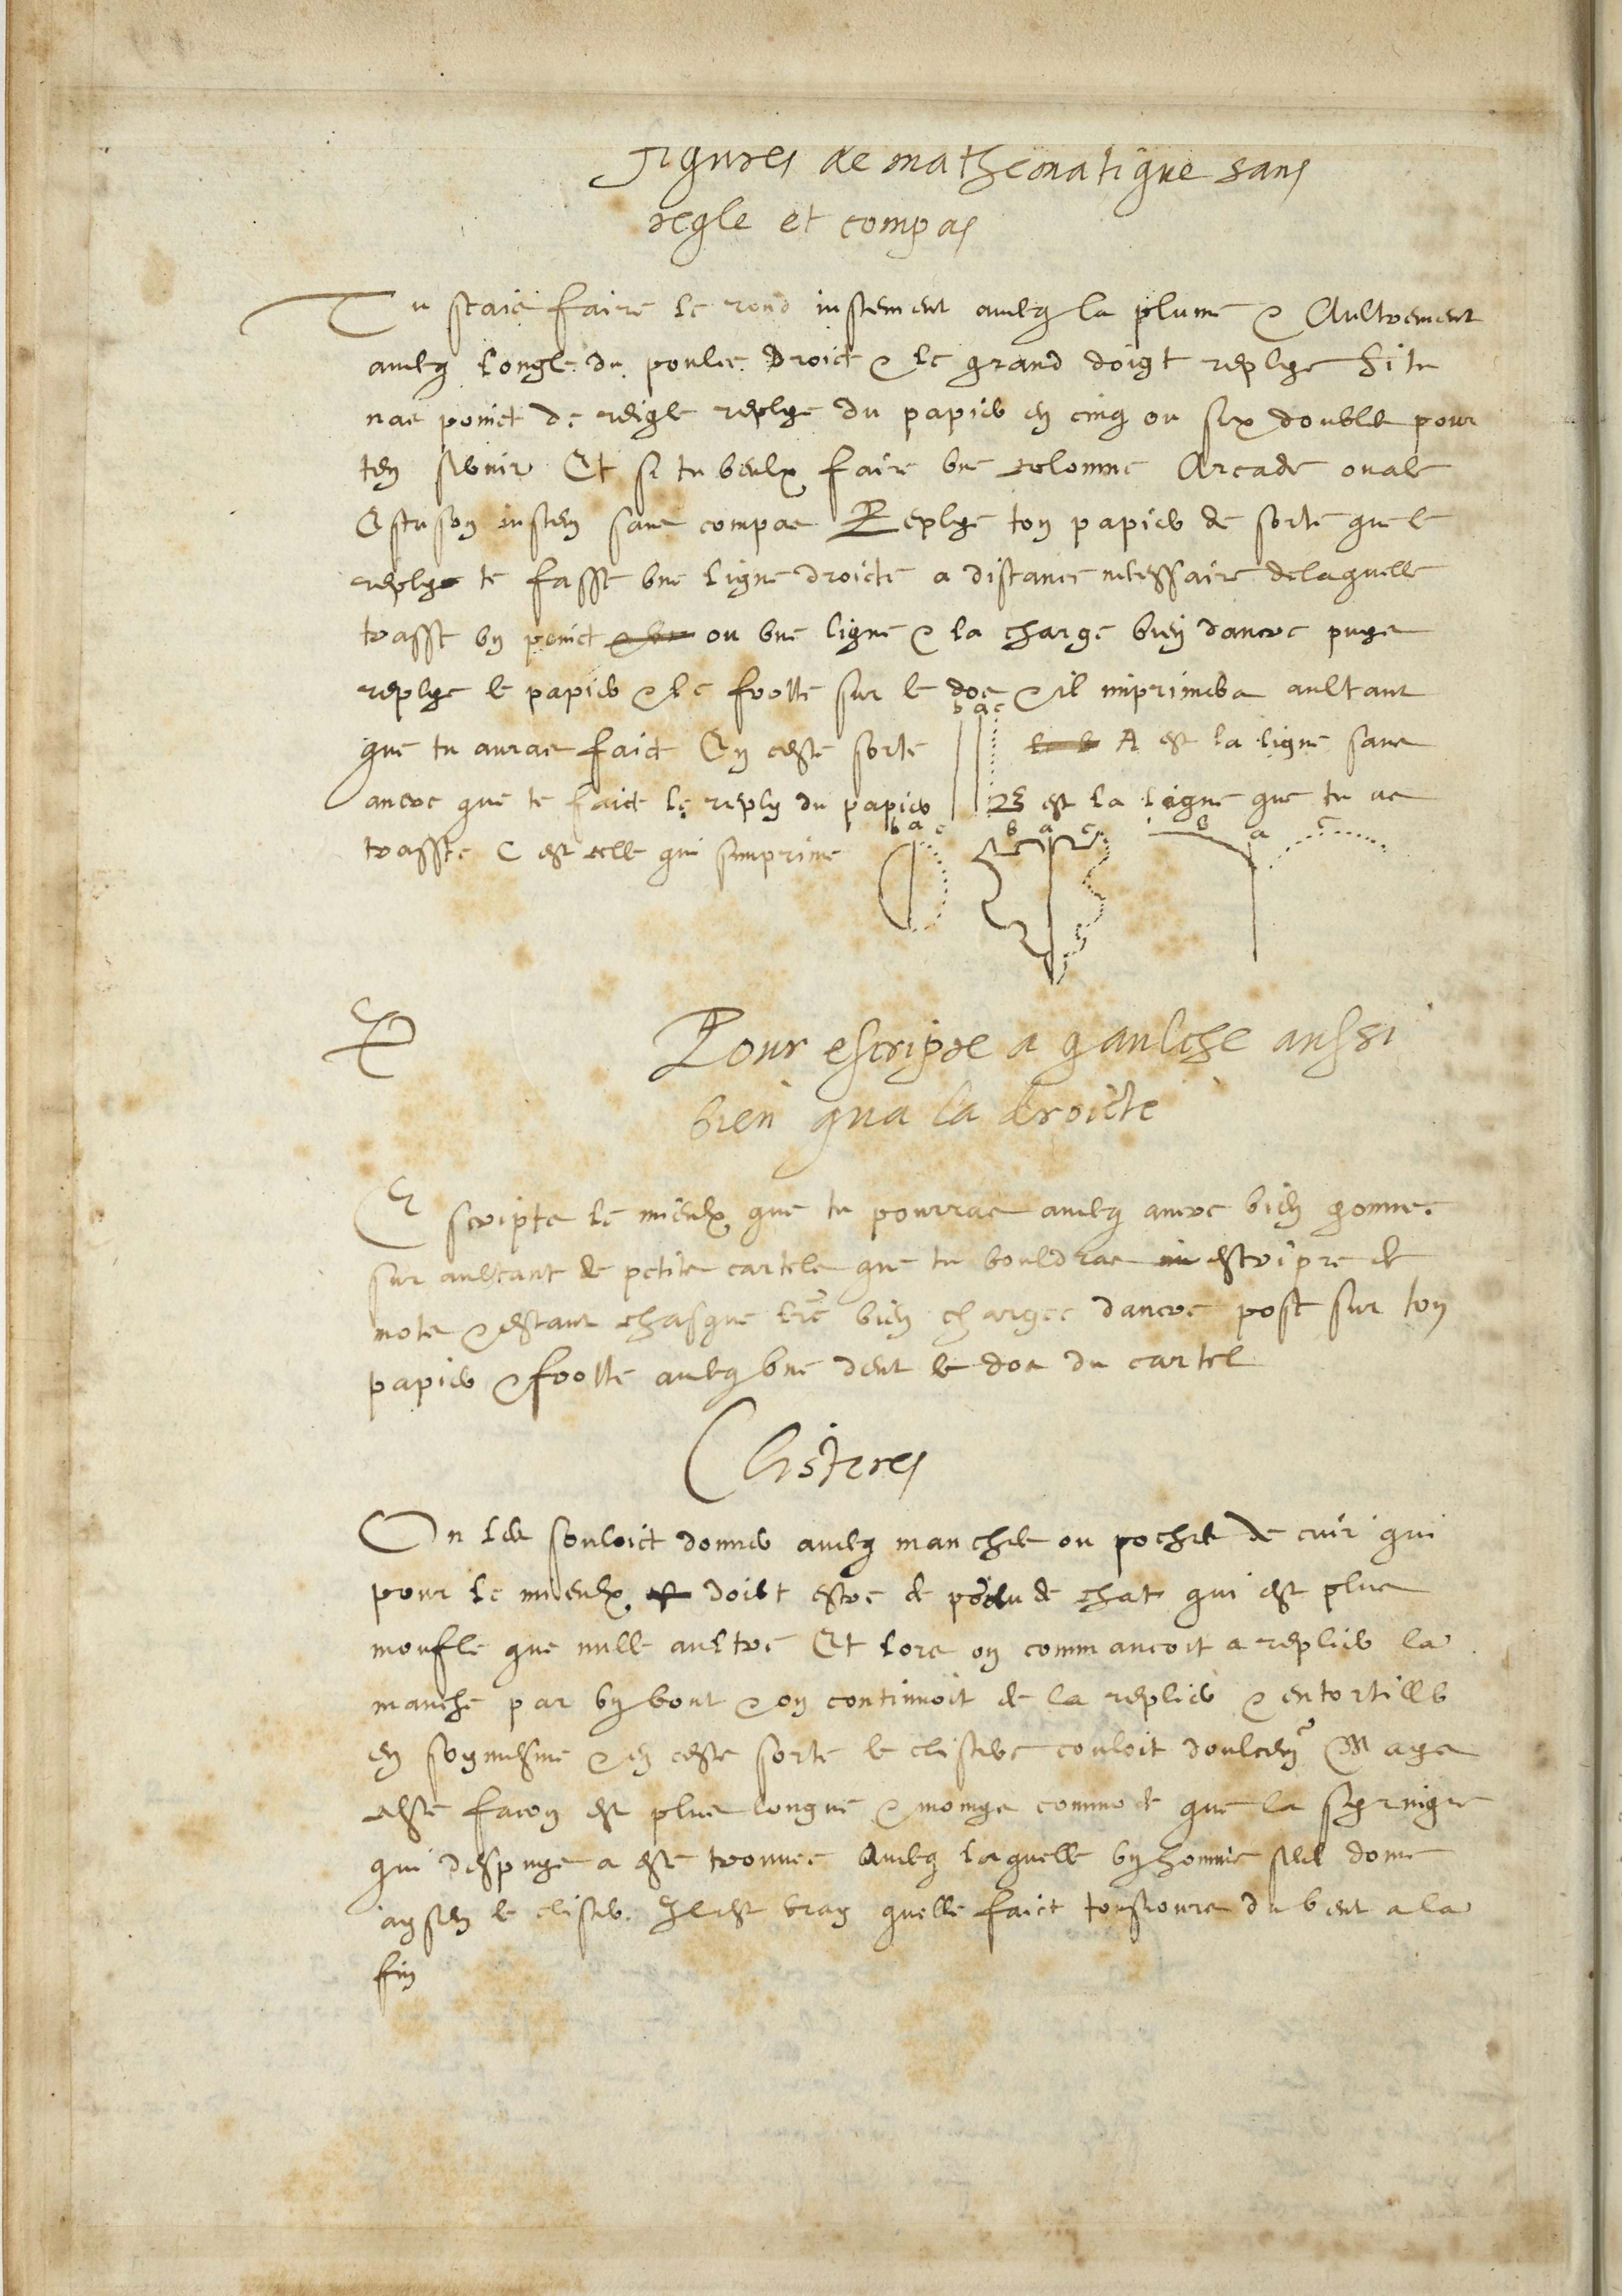 Figures de mathematique sans
regle et compas
Tu scais faire le rond justement avecq la plume & Aultrement
avecq longle du poulce Droict & le grand doigt replye Si tu
nas poinct de reigle replye du papier en cinq ou six doubles pour
ten servir Et si tu veulx faire une colomne Arcade ovale
Escusson justem sans compas Replye ton papier de sorte que le
reply te fasse une ligne droicte a distance necessaire delaquelle
trasse un poinct ou une ligne & la charge bien dancre puys
replye le papier & le frotte sur le dos & il imprimera aultant
b a c
que tu auras faict En ceste sorte A est la ligne sans
ancre que te faict le reply du papier B est la ligne que tu as
trassee C est celle qui simprime
b a c b a c b a c
Pour escripre a gaulche aussi
bien qua la droicte
Escripts le mieulx que tu pourras avecq ancre bien gommee
sur aultant de petits cartels que tu vouldras escripre de
mots & estant chasque lre bien chargee dancre pose sur ton
papier & frotte avecq une dent le dos du cartel
Clisteres
On les souloict donner avecq manches ou poches de cuir qui
pour le mieulx doibt estre de peau de chat qui est plus
moufle que nulle aultre Et lors on commancoit a replier la
manche par un bout & on continuoit de la replier & entortiller
en soymesme & en ceste sorte le clistere couloit doulcem Mays
ceste facon est plus longue & moings commode que la syringue
qui despuys a este trouvee Avecq laquelle un homme seul donne
aysem le clister. Il est vray quelle faict tousjours du vent a la
fin